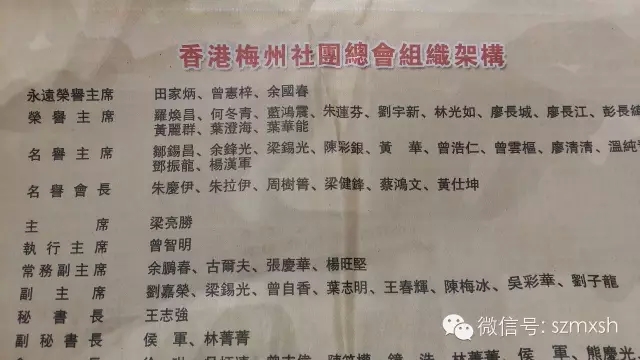 香港梅州社團總會組織架構
永遠榮譽主席 田家炳、曾憲梓、余國春
榮譽主席 羅煥昌、何冬青、藍鴻震、朱蓮芬、劉宇新、林光如、廖長城、廖長江、彭長
黃麗群、葉澄海、葉華能
名譽主席 鄒錫昌、余鋒光、梁錫光、陳彩銀、黃華、曾浩仁、曾雲樞、廖清清、溫純
鄧振龍、楊漢軍
名譽會長 朱慶伊、朱拉伊、周樹箐、梁健鋒、蔡鴻文、黃仕坤
主席 梁亮勝
執行主席 曾智明
常務副主席 余鵬春、古爾夫、張慶華、楊旺堅
副主席 劉嘉榮、梁錫光、曾自香、葉志明、王春輝、陳梅冰、吳彩華、劉子龍
秘書長 王志強
副秘書長 侯軍、林菁菁
林菁菁、侯軍、熊慶光
微信号: szmxsh